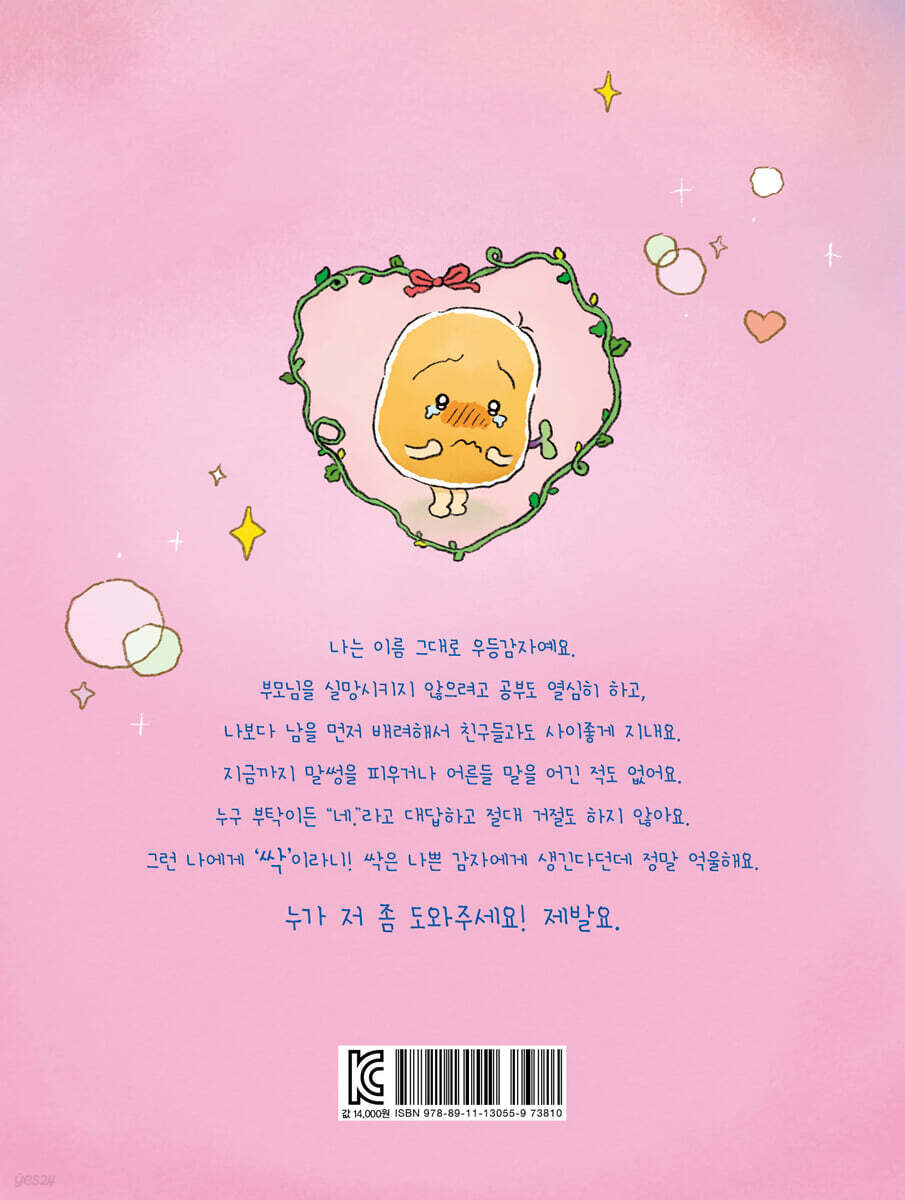 나는 이름 그대로 우등감자예요.
부모님을 실망시키지 않으려고 공부도 열심히 하고,
나보다 남을 먼저 배려해서 친구들과도 사이좋게 지내요.
지금까지 말썽을 피우거나 어른들 말을 어긴 적도 없어요.
누구 부탁이든 “네.”라고 대답하고 절대 거절도 하지 않아요.
그런 나에게 ‘싹’이라니! 싹은 나쁜 감자에게 생긴다던데 정말 억울해요.
누가 저 좀 도와주세요! 제발요.
KC
값 14,000원 ISBN 978-89-11-13055-9 73810
yes24